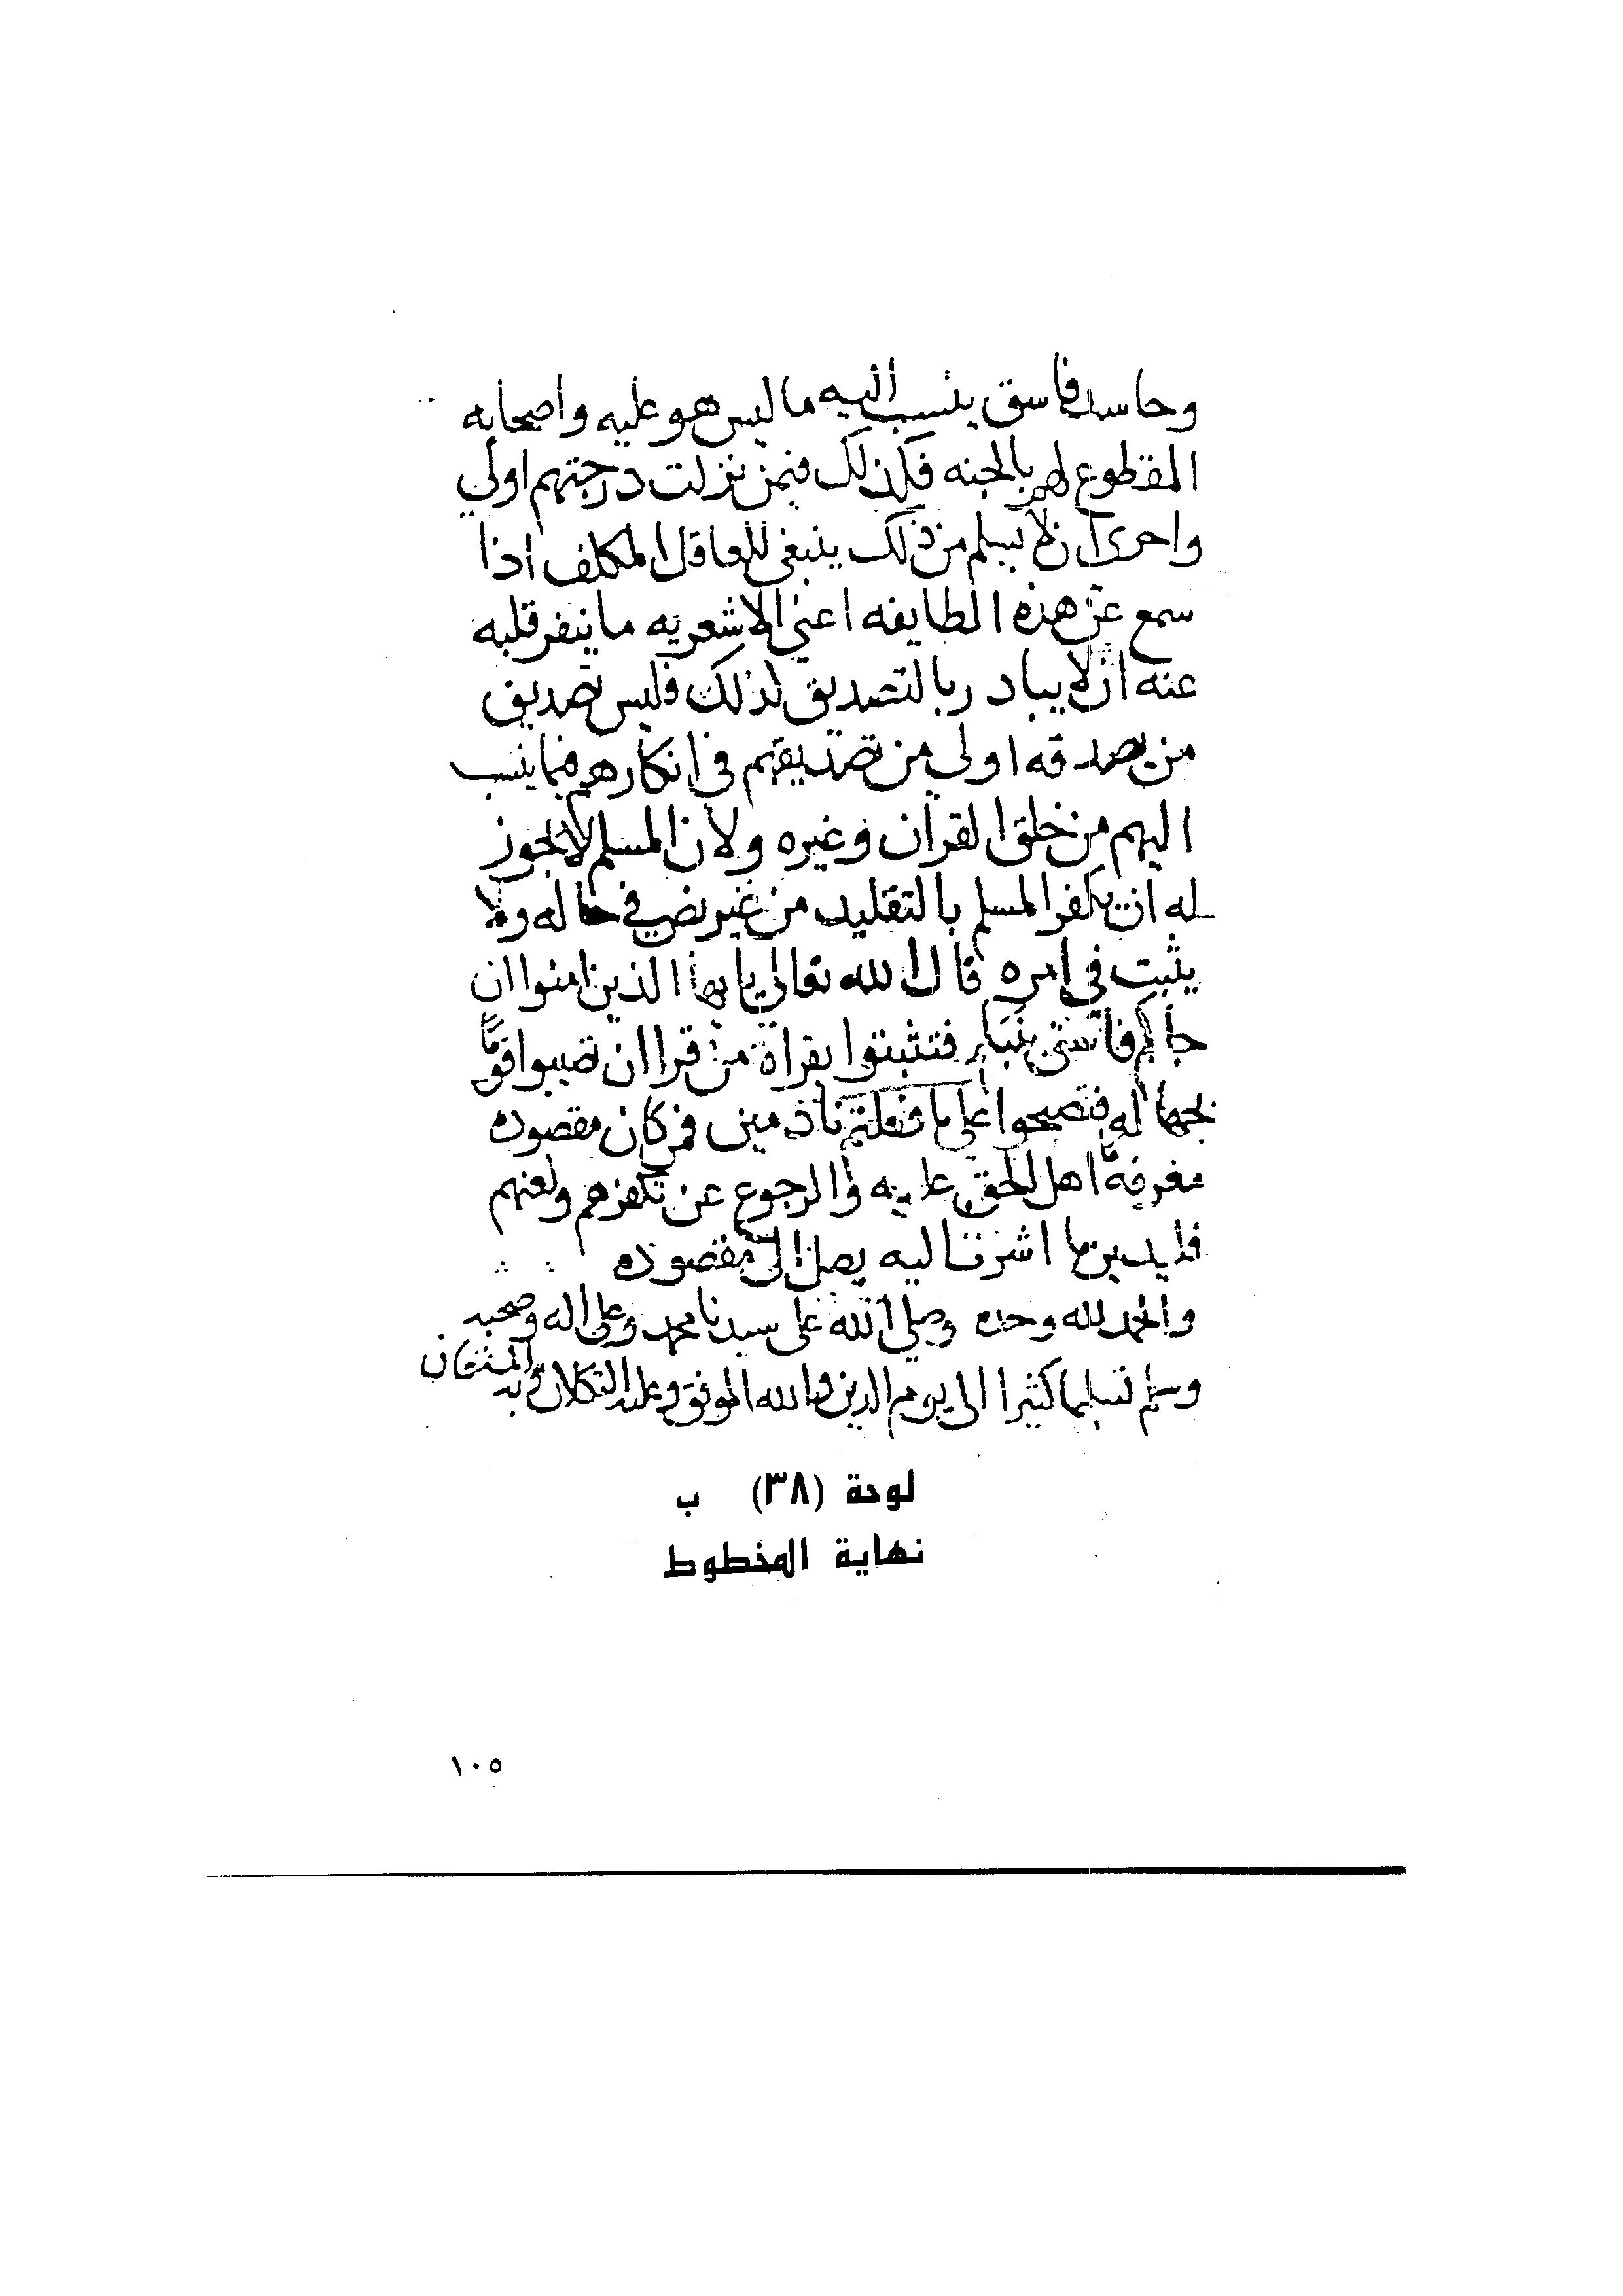 وحاسد فاسق ينسب اليه ما ليس هو عليه واصحابه
المقطوع لهم بالجنه فكذلك فيمن نزلت درجتهم اولي
واحرى ان لا يسلم من ذلك ينبغي للعاقل المكلف اذا
سمع عن هذه الطايفه اعني الاشعريه ما ينفر قلبه
عنه ان لا يبادر بالتصديق لذلك فليس تصديق
من يصدقه اولى من تصديقهم في انكارهم فيما ينسب
اليهم من خلق القرآن وغيره ولان المسلم لا يجوز
له ان يكفر المسلم بالتقليد من غير نص في حاله ولا
يثبت في امره قال الله تعالى يايها الذين امنوا ان
جاكم فاسق بنبإ فتثبتوا بقراة من قرا ان تصيبوا قومًا
بجهاله فتصبحوا على ما فعلتم نادمين فمن كان مقصوده
معرفة ما اهل الحق عليه والرجوع عن تكفيرهم ولعنهم
ما اشرنا اليه يصل الى مقصوده
والحمد لله وحده وصلى الله على سيدنا محمد وعلى اله وصحبه
وسلم تسليما كثيرا الى يوم الدين والله الموفق وعليه التكلان وبه المستعان
لوحة (٣٨) ب
نهاية المخطوط
١٠٥